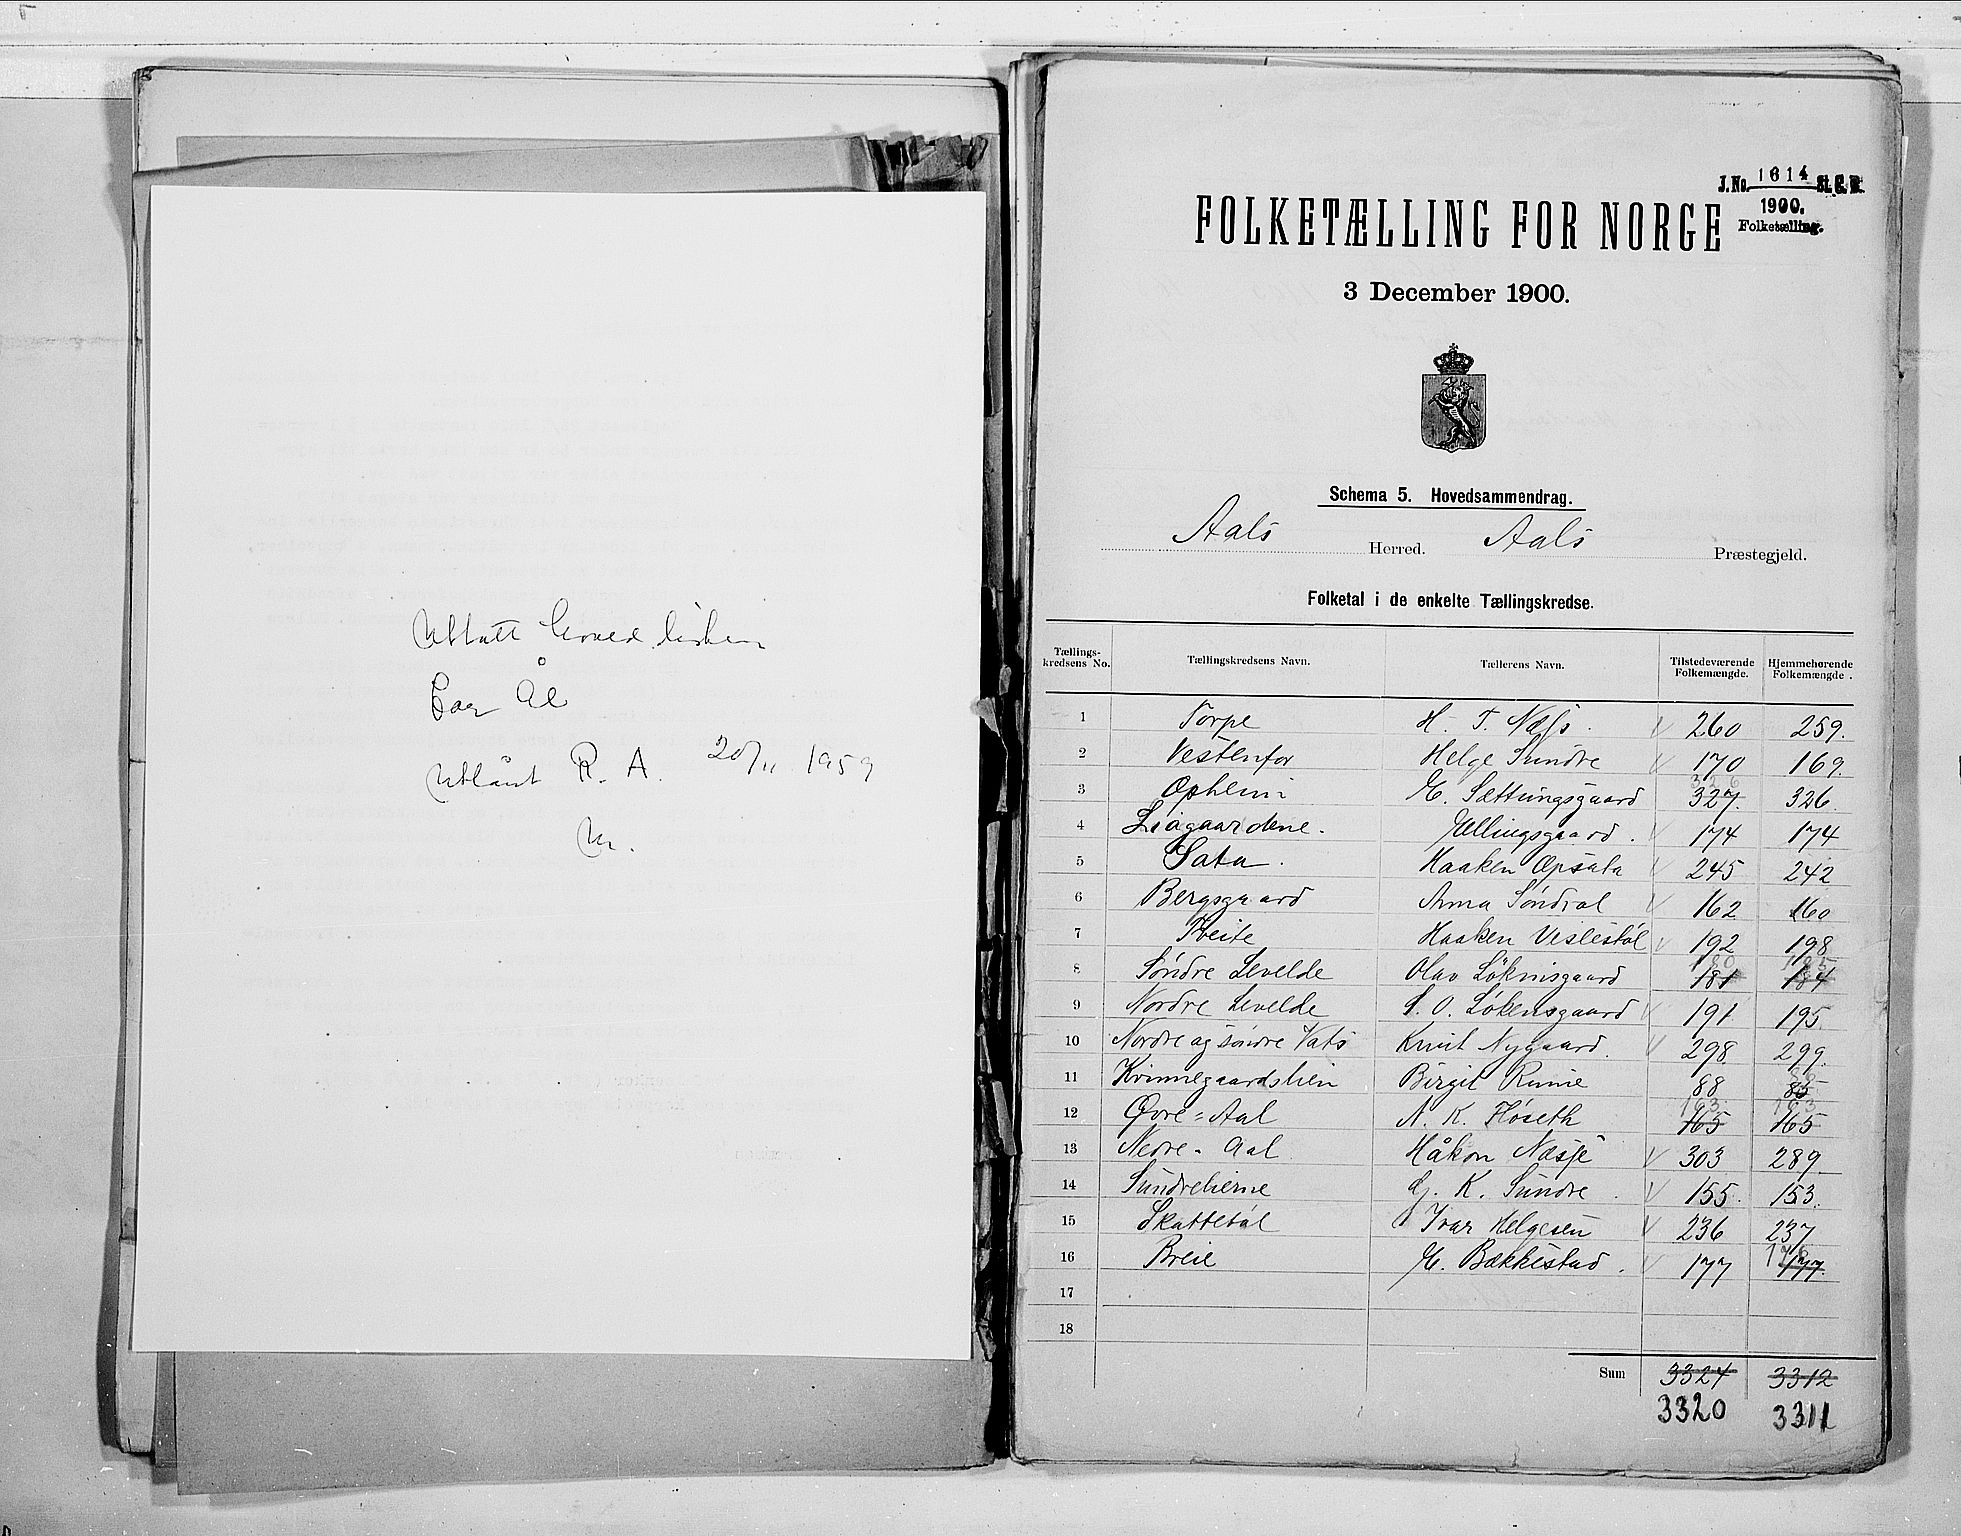 Uttatt hovedlisten
for Ål
utlånt R. A. 20/11 1959
J. No. 1614 St. C. B.
1900.
Folketælling.
FOLKETÆLLING FOR NORGE
3 December 1900.
Schema 5. Hovedsammendrag.
Aals Herred. Aals Præstegjeld.
Folketal i de enkelte Tællingskredse.
Tællingskredsens No. Tællingskredsens Navn. Tællerens Navn. Tilstedeværende Folkemængde. Hjemmehørende Folkemængde.
1 Torpe H. T. Næss. 260 259.
2 Vestenfor Helge Sundre 170 169.
3 Opheim E. Sættungsgaard 326 327. 326.
4 Liagaardene. Ellingsgaard. 174 174
5 Sata. Haaken Opsata 245 242
6 Bergsgaard Anna Søndral 162 160
7 Tveite Haaken Veslestøl 192 198
8 Søndre Levelde Olav Løkensgaard 180 181 185 184
9 Nordre Levelde S. O. Løkensgaard 191 195
10 Nordre og søndre Vats Knut Nygaard. 298 299.
11 Kvinnegaardslien Birgit Rime 88 85
12 Øvre-Aal N. K. Høseth 163 165 163 165
13 Nedre-Aal Håkon Næsje 303 289.
14 Sundrelierne G. K. Sundre. 155. 153.
15 Skattebøl Ivar Helgesen 236 237
16 Breie E. Bækkestad. 177 176 177.
17
18
Sum 3324 3312
3320 3311